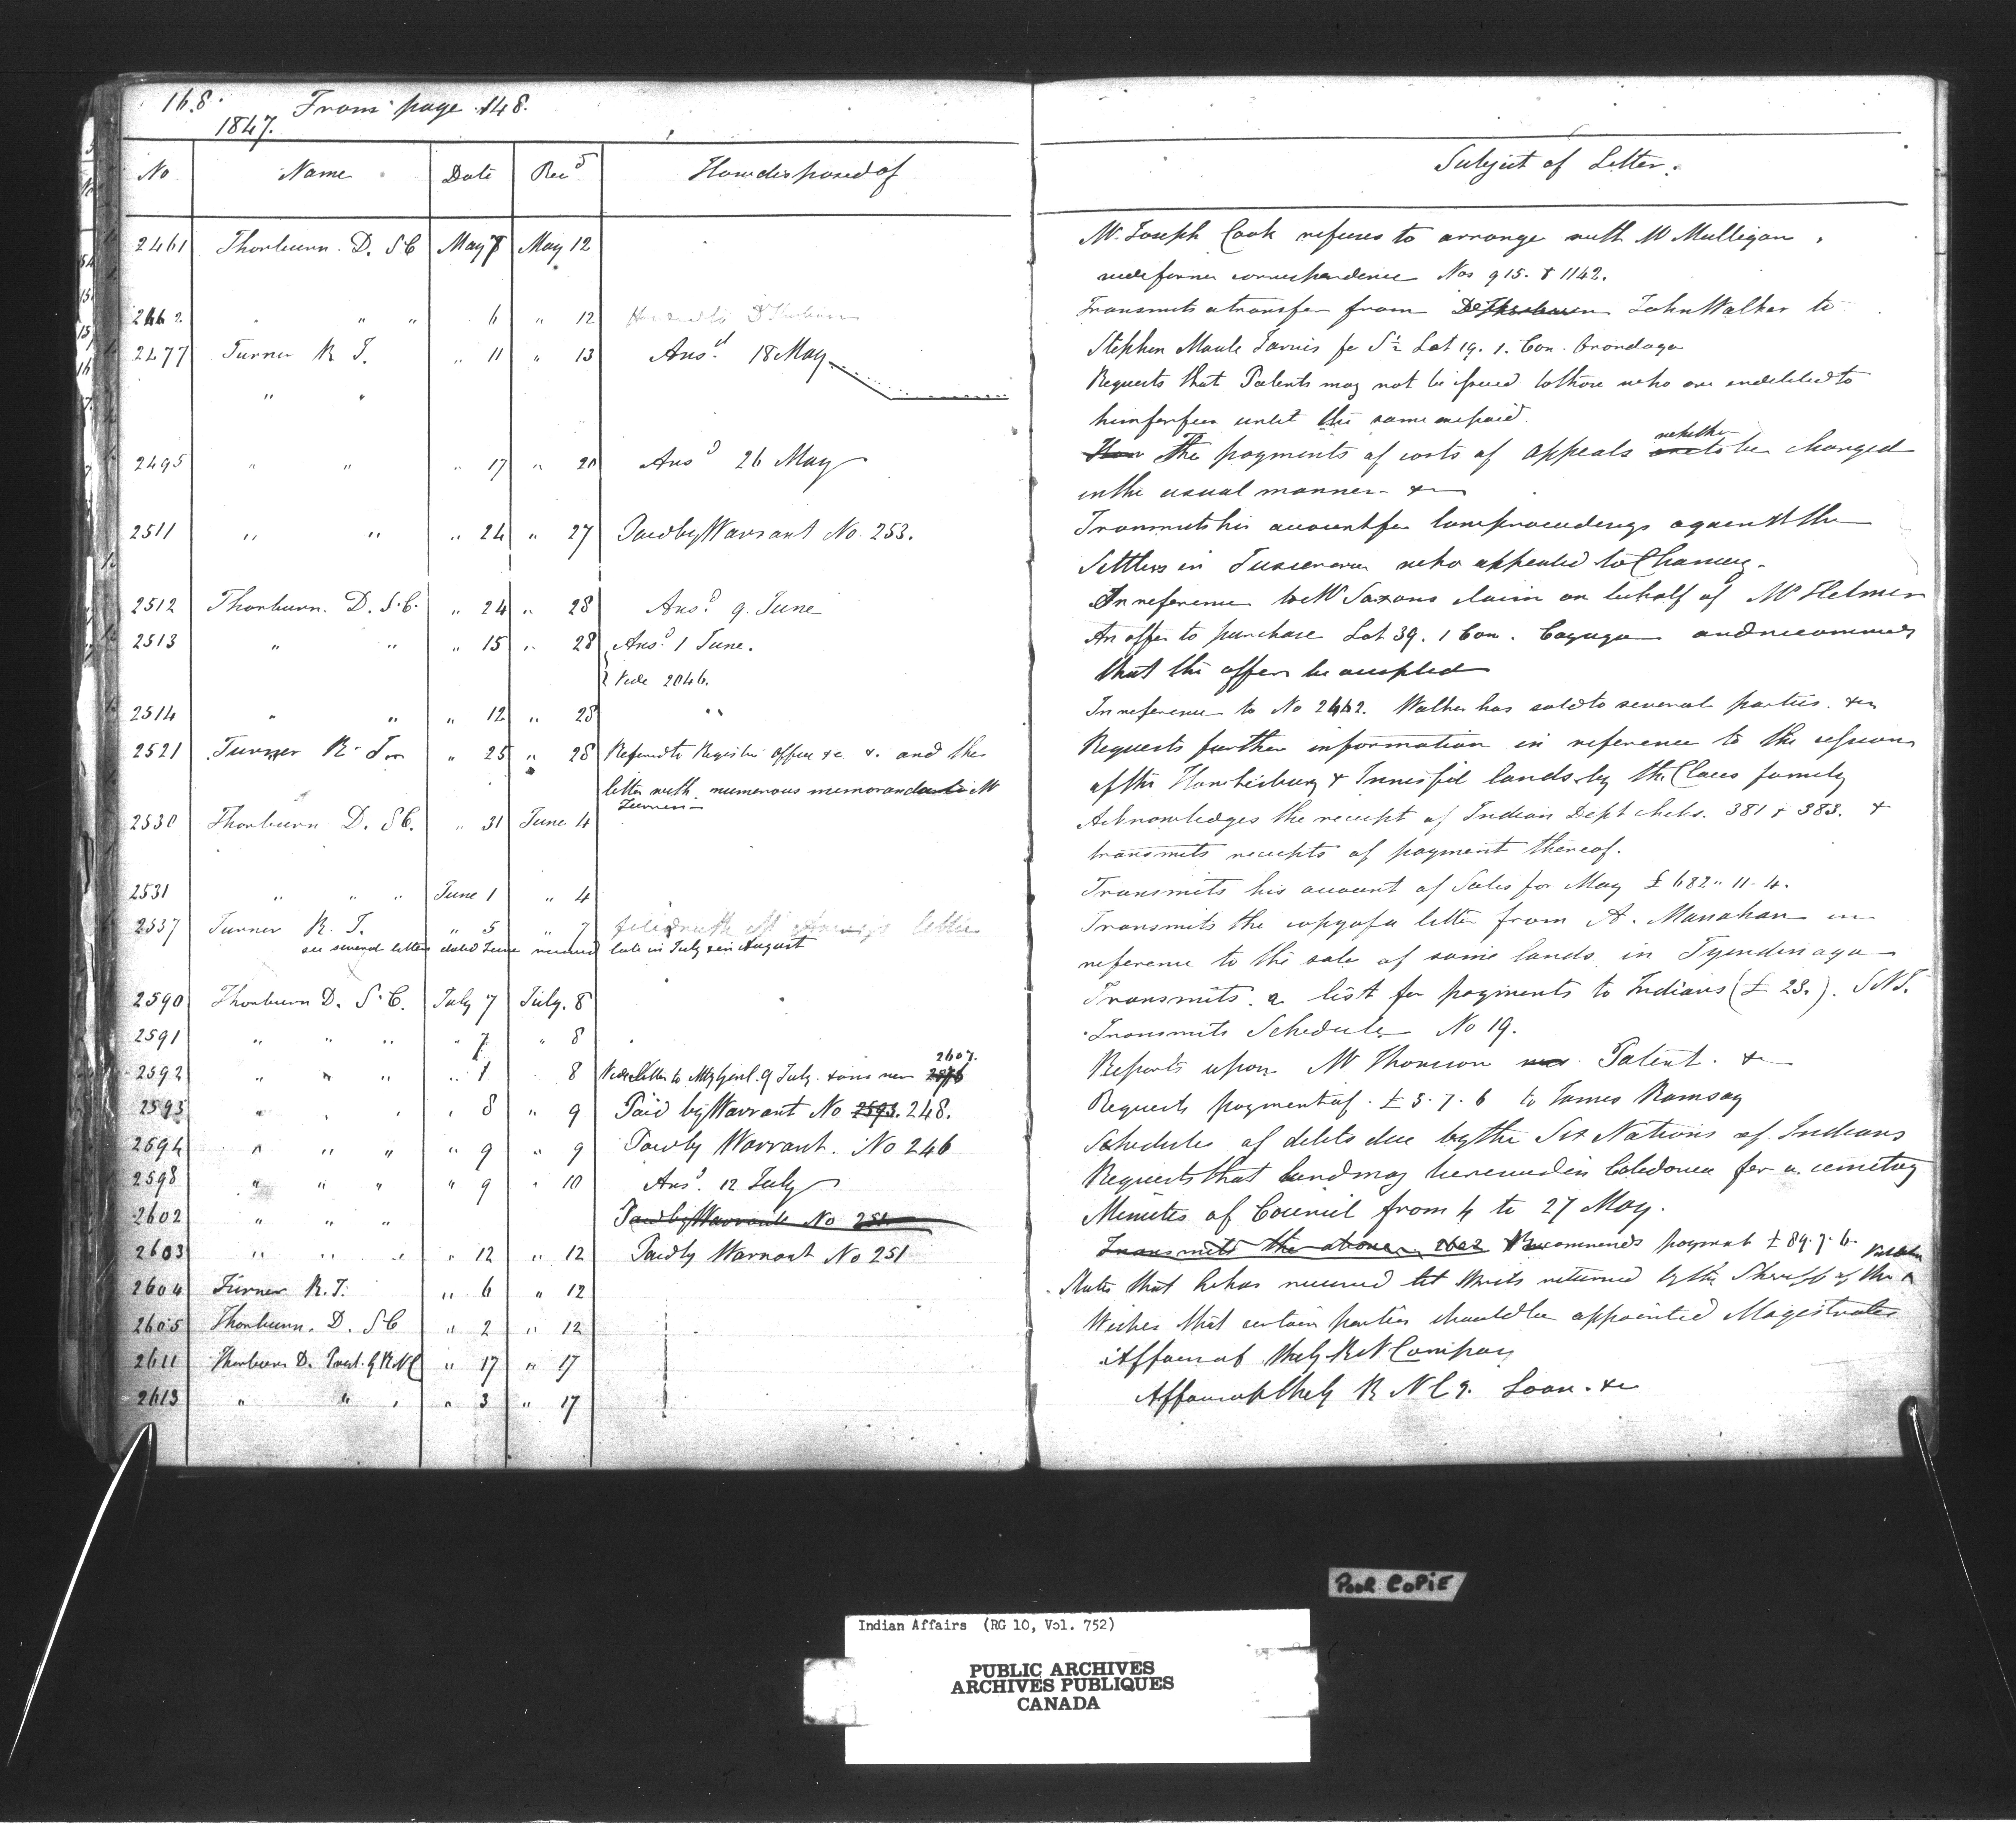 168. From page 148.
1847.
No Name Date Recd How disposed of Subject of Letter.
2461 Thorburn. D. S C May 7 May 12 Mr Joseph Cook refuses to arrange with Mr Mulligan.
vide former correspondence Nos 915. & 1142.
2462 " " " 6 " 12 Transmits a transfer from John Walker to
Stephen Maule Jarvis for S½ Lot 19. 1. Con. Onondaga
2477 Turner R T. " 11 " 13 Ansd 18 May
" " Requests that Patents may not be issued to those who are indebted to
him for fees until the same are paid.
2495 " " " 17 " 20 Ansd 26 May The payments of costs of appeals whether to be charged
in the usual manner. &c
2511 " " " 24 " 27 Paid by Warrant No. 253. Transmits his account for law proceedings against the
Settlers in Tuscarora who appealed to Chancery.
2512 Thorburn. D. S.C. " 24 " 28 Ansd 9. June In reference to Mr Saxons claim on behalf of Mr Helmer
2513 " " " 15 " 28 Ansd 1 June. An offer to purchase Lot 39. 1 Con. Cayuga and recommends
Vide 2046. that the offer be accepted
2514 " " " 12 " 28 " In reference to No 2462. Walker has sold to several parties. &c
2521 Turner R. T. " 25 " 28 Referred to Register Office &c &. and the Requests further information in reference to the
letter with numerous memoranda to Mr of the Hawkesbury & Innisfil lands by the Claus family
Turner
2530 Thorburn D. S C. " 31 June 4 Acknowledges the receipt of Indian Dept checks. 381 & 383. &
transmits receipts of payment thereof.
2531 " " " June 1 " 4 Transmits his account of Sales for May £682 " 11 - 4.
2537 Turner R. T. " 5 " 7 filed with letter Transmits the copy of a letter from A. Manahan in
see several letters dated June received late in July & in August reference to the sale of some lands in Tyendinaga
2590 Thorburn D. S. C. July 7 July. 8 Transmits a list for payments to Indians (£ 23.). S N I.
2591 " " " " 7 " 8 Transmits Schedule No 19.
2592 " " " " 7 8 Vide letter to Atty Genl. 9 July. 2607. Reports upon Mr Thomson Patent. &c
2593 " " " " 8 " 9 Paid by Warrant No 2593. 248. Requests payment of. £5. 7. 6 to James Ramsay
2594 " " " " 9 " 9 Paid by Warrant. No 246 Schedule of debts due by the Six Nations of Indians
2598 " " " " 9 " 10 Ansd. 12 July Requests that land may be reserved in Caledonia for a cemetery
2602 " " " Paid by Warrant No 251 Minutes of Council from 4 to 27 May.
2603 " " " " 12 " 12 Paid by Warrant No 251 Transmits the above 2602 Recommends payment £89. 7. 6.
2604 Turner R. T. " 6 " 12 States that he has received writs returned by the Sheriff of the
2605 Thorburn. D. S C " 2 " 12 Wishes that certain parties should be appointed Magistrates
2611 Thorburn D. Prest. G R N C " 17 " 17 Affairs of the G. R N Company
2613 " " " " 3 " 17 Affairs of the G R N Co. Loan. &c
POOR COPIE
Indian Affairs (RG 10, Vol. 752)
PUBLIC ARCHIVES
ARCHIVES PUBLIQUES
CANADA